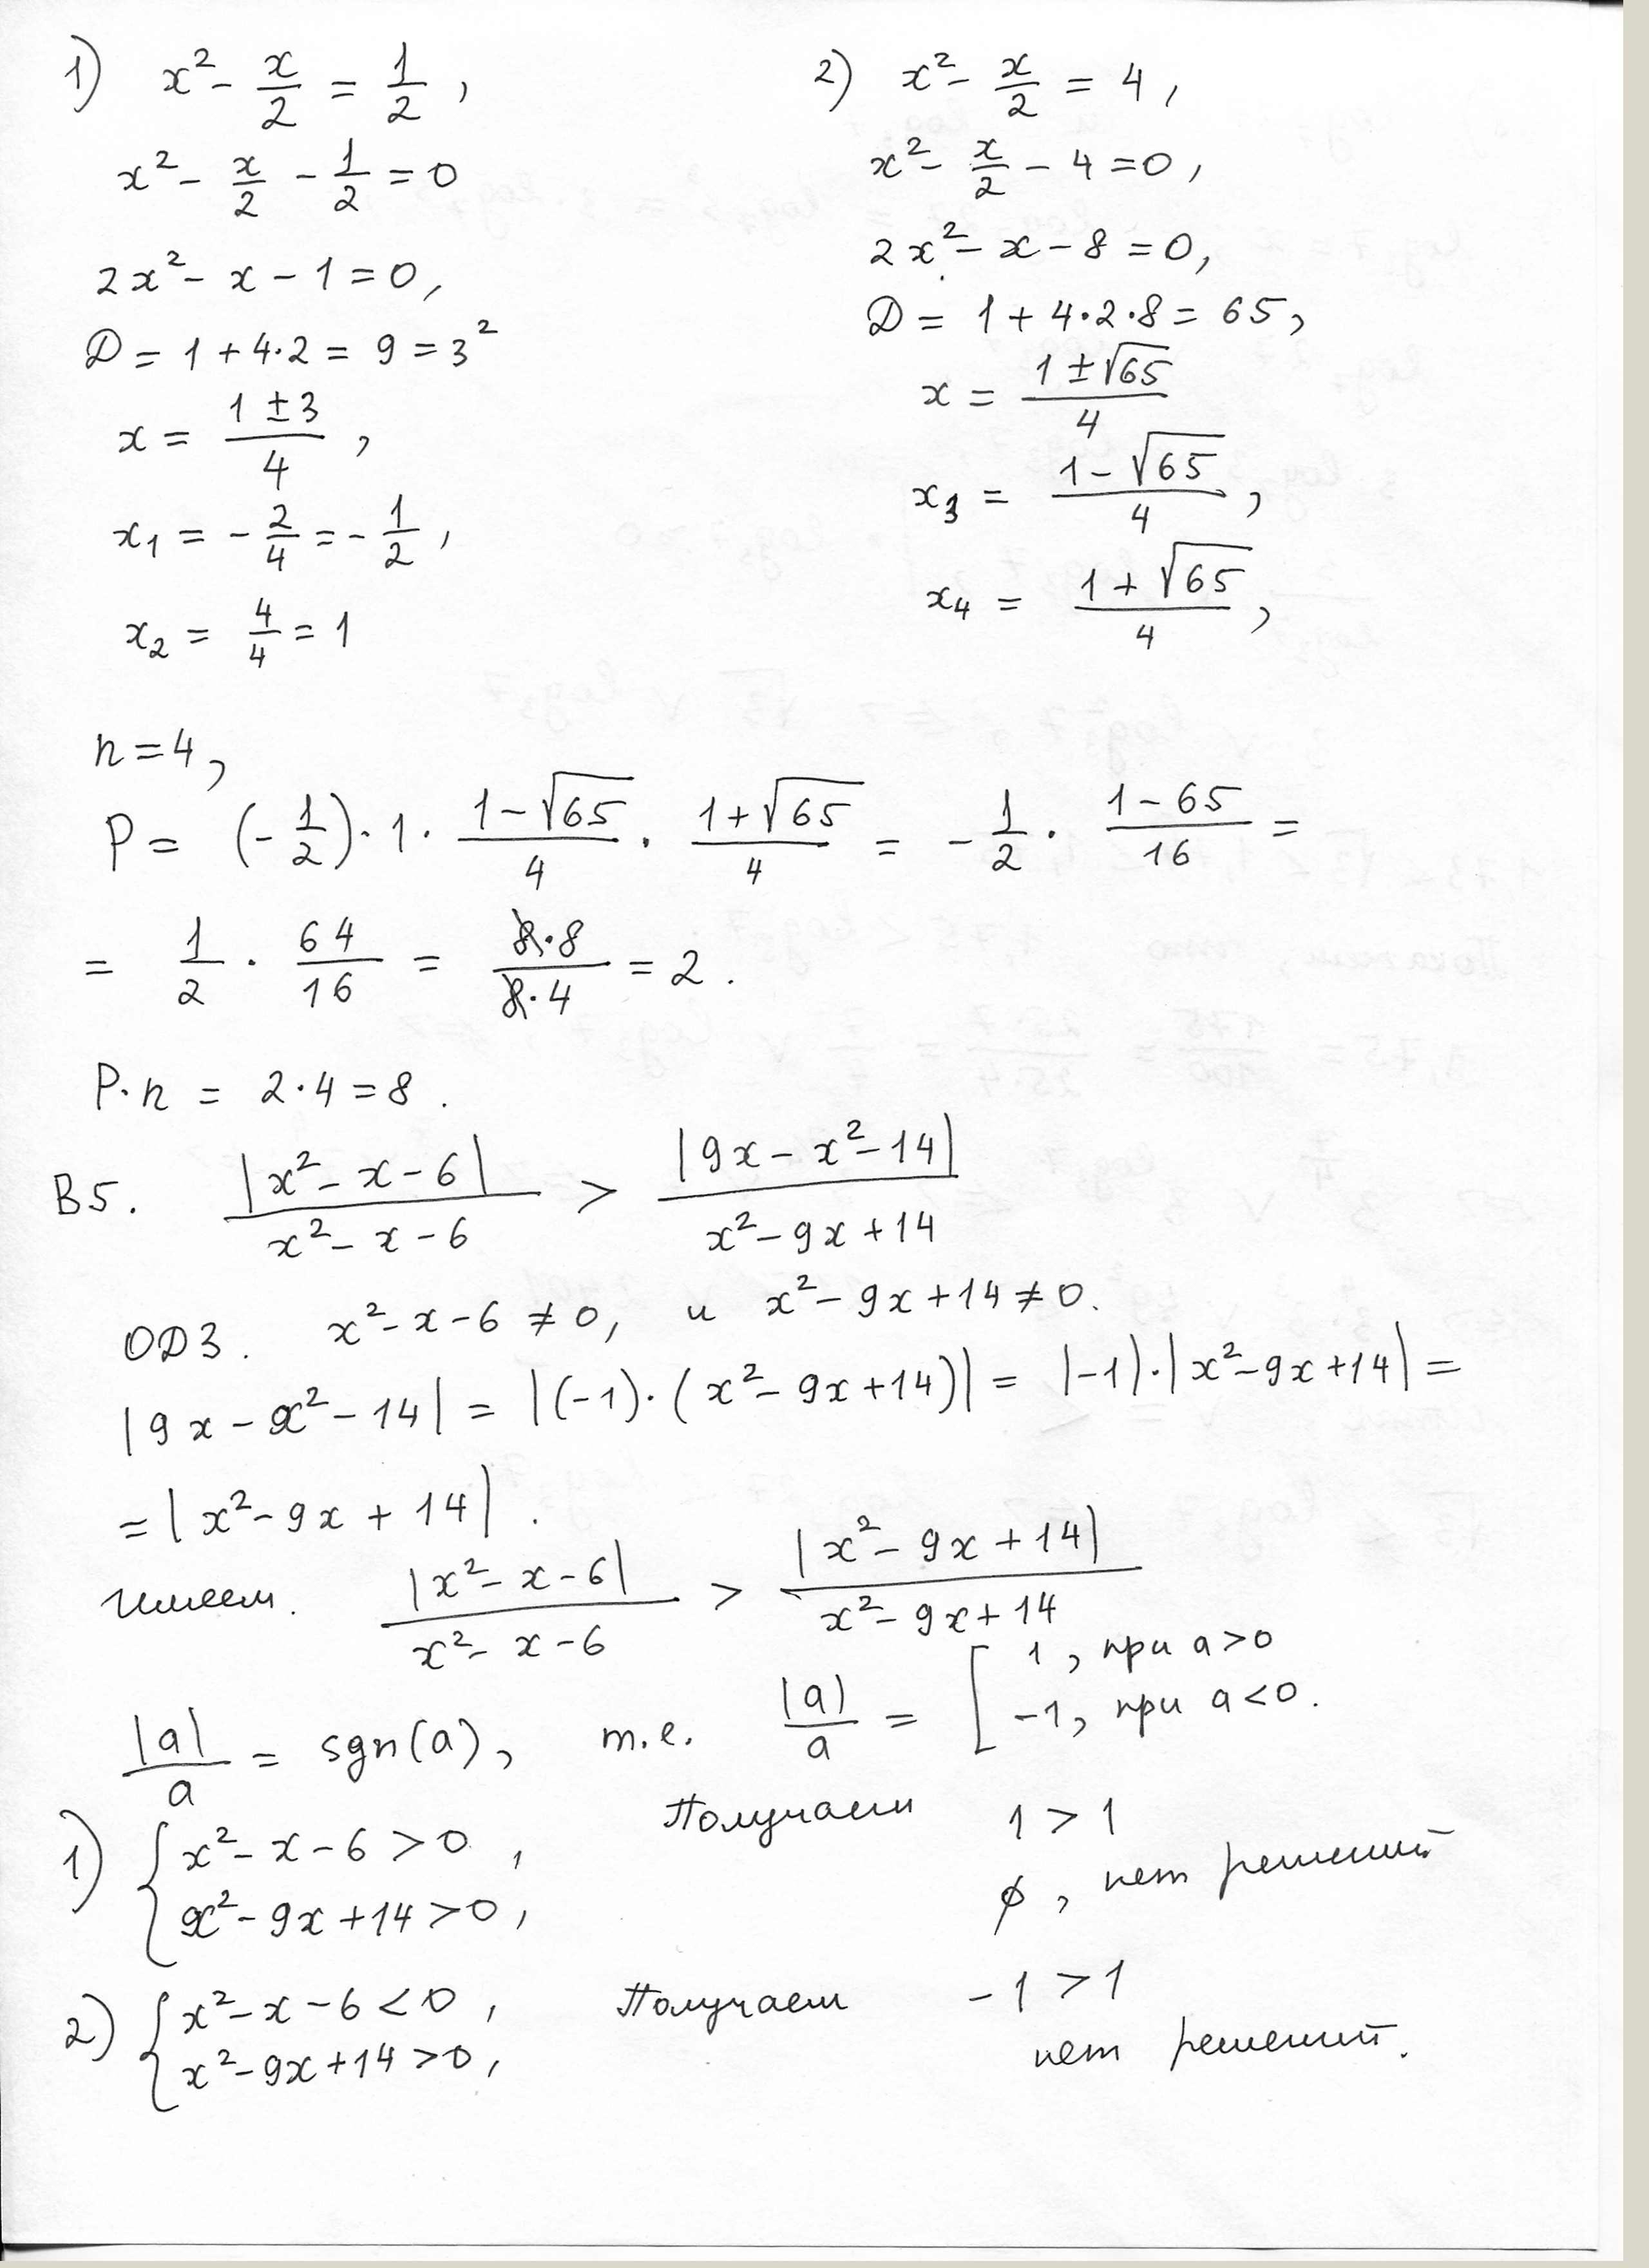 1) x² - x/2 = 1/2 ,
x² - x/2 - 1/2 = 0
2x² - x - 1 = 0,
D = 1 + 4·2 = 9 = 3²
x = (1 ± 3)/4 ,
x₁ = - 2/4 = - 1/2 ,
x₂ = 4/4 = 1
2) x² - x/2 = 4 ,
x² - x/2 - 4 = 0 ,
2x² - x - 8 = 0,
D = 1 + 4·2·8 = 65,
x = (1 ± √65)/4
x₃ = (1 - √65)/4 ,
x₄ = (1 + √65)/4 ,
n = 4,
P = (- 1/2)·1· (1 - √65)/4 · (1 + √65)/4 = - 1/2 · (1 - 65)/16 =
= 1/2 · 64/16 = (8·8)/(8·4) = 2 .
P·n = 2·4 = 8 .
B5. |x² - x - 6|/(x² - x - 6) > |9x - x² - 14|/(x² - 9x + 14)
ОДЗ. x² - x - 6 ≠ 0, и x² - 9x + 14 ≠ 0.
|9x - x² - 14| = |(-1)·(x² - 9x + 14)| = |-1|·|x² - 9x + 14| =
= |x² - 9x + 14| .
Имеем. |x² - x - 6|/(x² - x - 6) > |x² - 9x + 14|/(x² - 9x + 14)
|a|/a = sgn(a), т.е. |a|/a = [ 1, при a > 0
-1, при a < 0.
1) { x² - x - 6 > 0 , Получаем 1 > 1
x² - 9x + 14 > 0 , ∅, нет решений
2) { x² - x - 6 < 0 , Получаем -1 > 1
x² - 9x + 14 > 0 , нет решений.